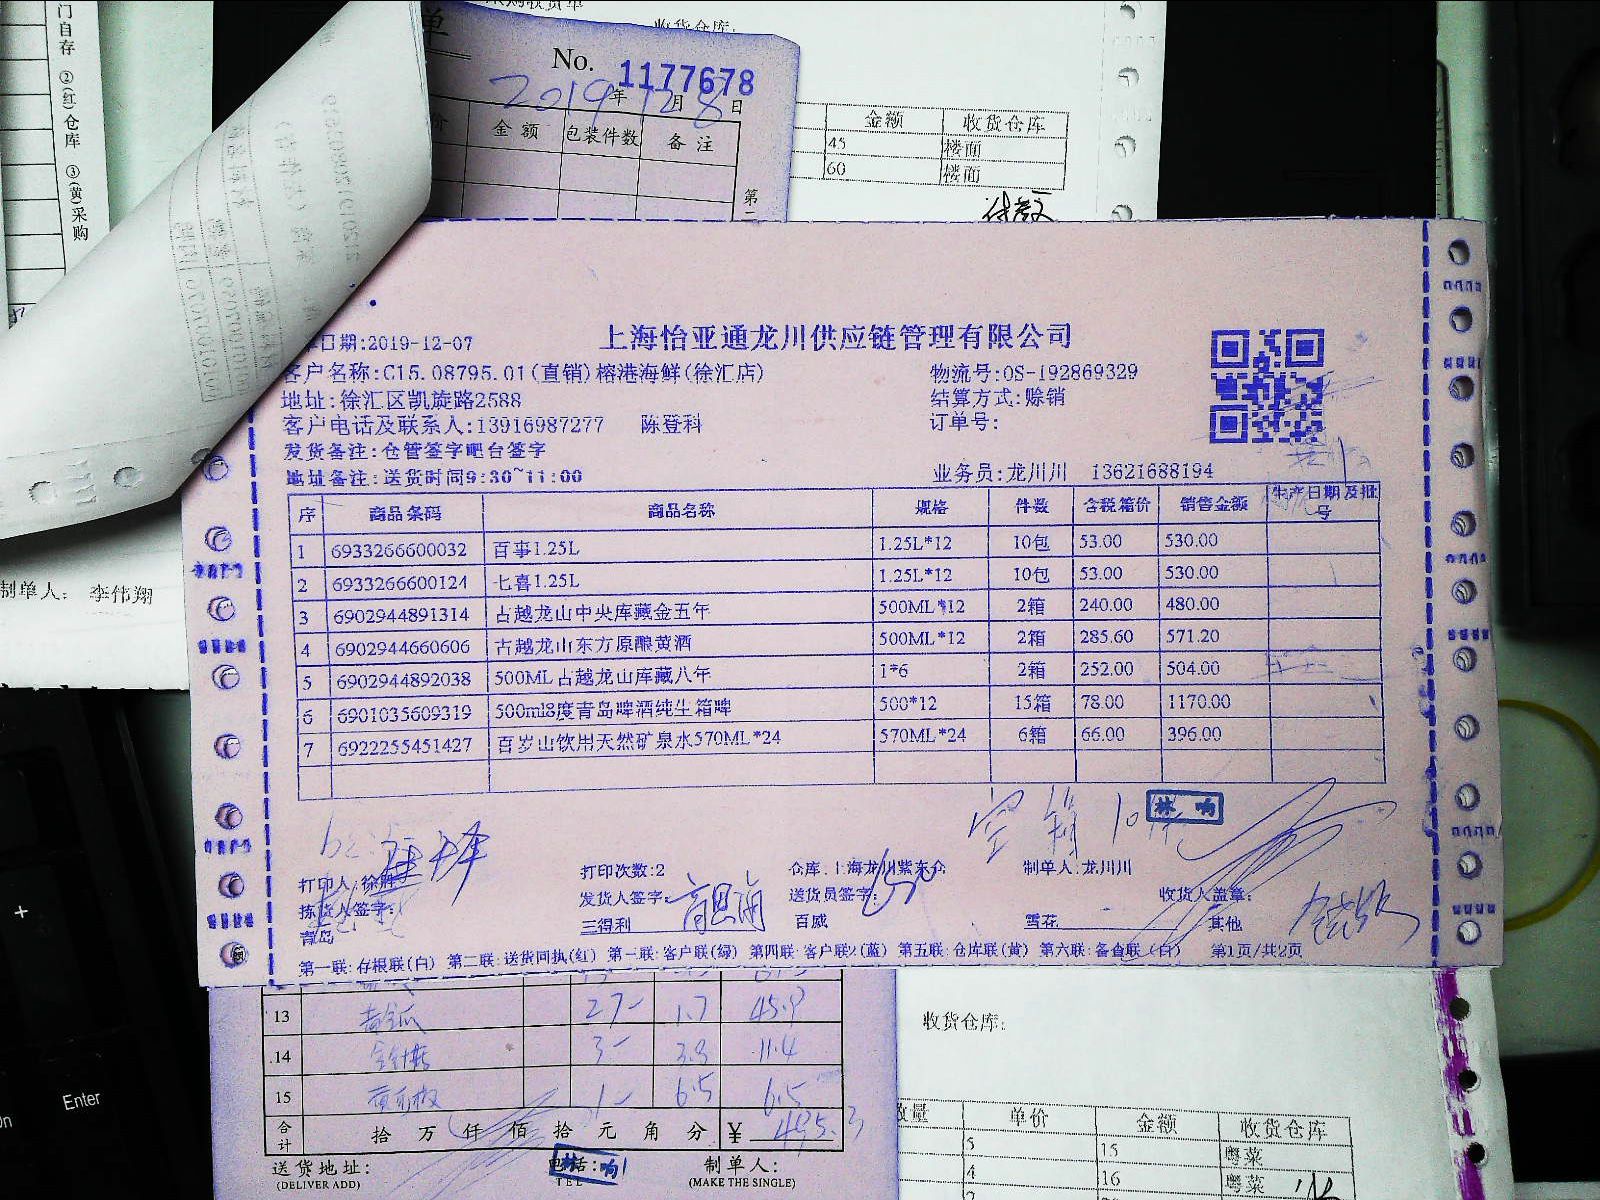 门自存 ②(红)仓库 ③(黄)采购
收货仓库:
No. 1177678
2019年12月8日
金额 包装件数 备注
第二
金额 收货仓库
45 楼面
60 楼面
制单人: 李伟翔
上海怡亚通龙川供应链管理有限公司
日期:2019-12-07
客户名称:C15.08795.01(直销)榕港海鲜(徐汇店) 物流号:OS-192869329
地址:徐汇区凯旋路2588 结算方式:赊销
客户电话及联系人:13916987277 陈登科 订单号:
发货备注:仓管签字吧台签字
地址备注:送货时间9:30~11:00 业务员:龙川川 13621688194
序 商品条码 商品名称 规格 件数 含税箱价 销售金额 生产日期及批号
1 6933266600032 百事1.25L 1.25L*12 10包 53.00 530.00
2 6933266600124 七喜1.25L 1.25L*12 10包 53.00 530.00
3 6902944891314 古越龙山中央库藏金五年 500ML*12 2箱 240.00 480.00
4 6902944660606 古越龙山东方原酿黄酒 500ML*12 2箱 285.60 571.20
5 6902944892038 500ML古越龙山库藏八年 1*6 2箱 252.00 504.00
6 6901035609319 500ml8度青岛啤酒纯生箱啤 500*12 15箱 78.00 1170.00
7 6922255451427 百岁山饮用天然矿泉水570ML*24 570ML*24 6箱 66.00 396.00
空箱10 林响
打印人:徐 打印次数:2 仓库:上海龙川紫东仓 制单人:龙川川
拣货人签字: 发货人签字: 送货员签字: 收货人盖章:
青岛 三得利 百威 雪花 其他
第一联:存根联(白) 第二联:送货回执(红) 第三联:客户联(绿) 第四联:客户联2(蓝) 第五联:仓库联(黄) 第六联:备查联(白) 第1页/共2页
13 黄瓜 27- 1.7 45.9
14 金针菇 3- 3.8 11.4
15 1- 6.5 6.5
合计 拾 万 仟 佰 拾 元 角 分 ¥ 495.3
送货地址: 电话: 林响 制单人:
(DELIVER ADD) TEL (MAKE THE SINGLE)
收货仓库:
数量 单价 金额 收货仓库
5 15 粤菜
4 16 粤菜
Enter